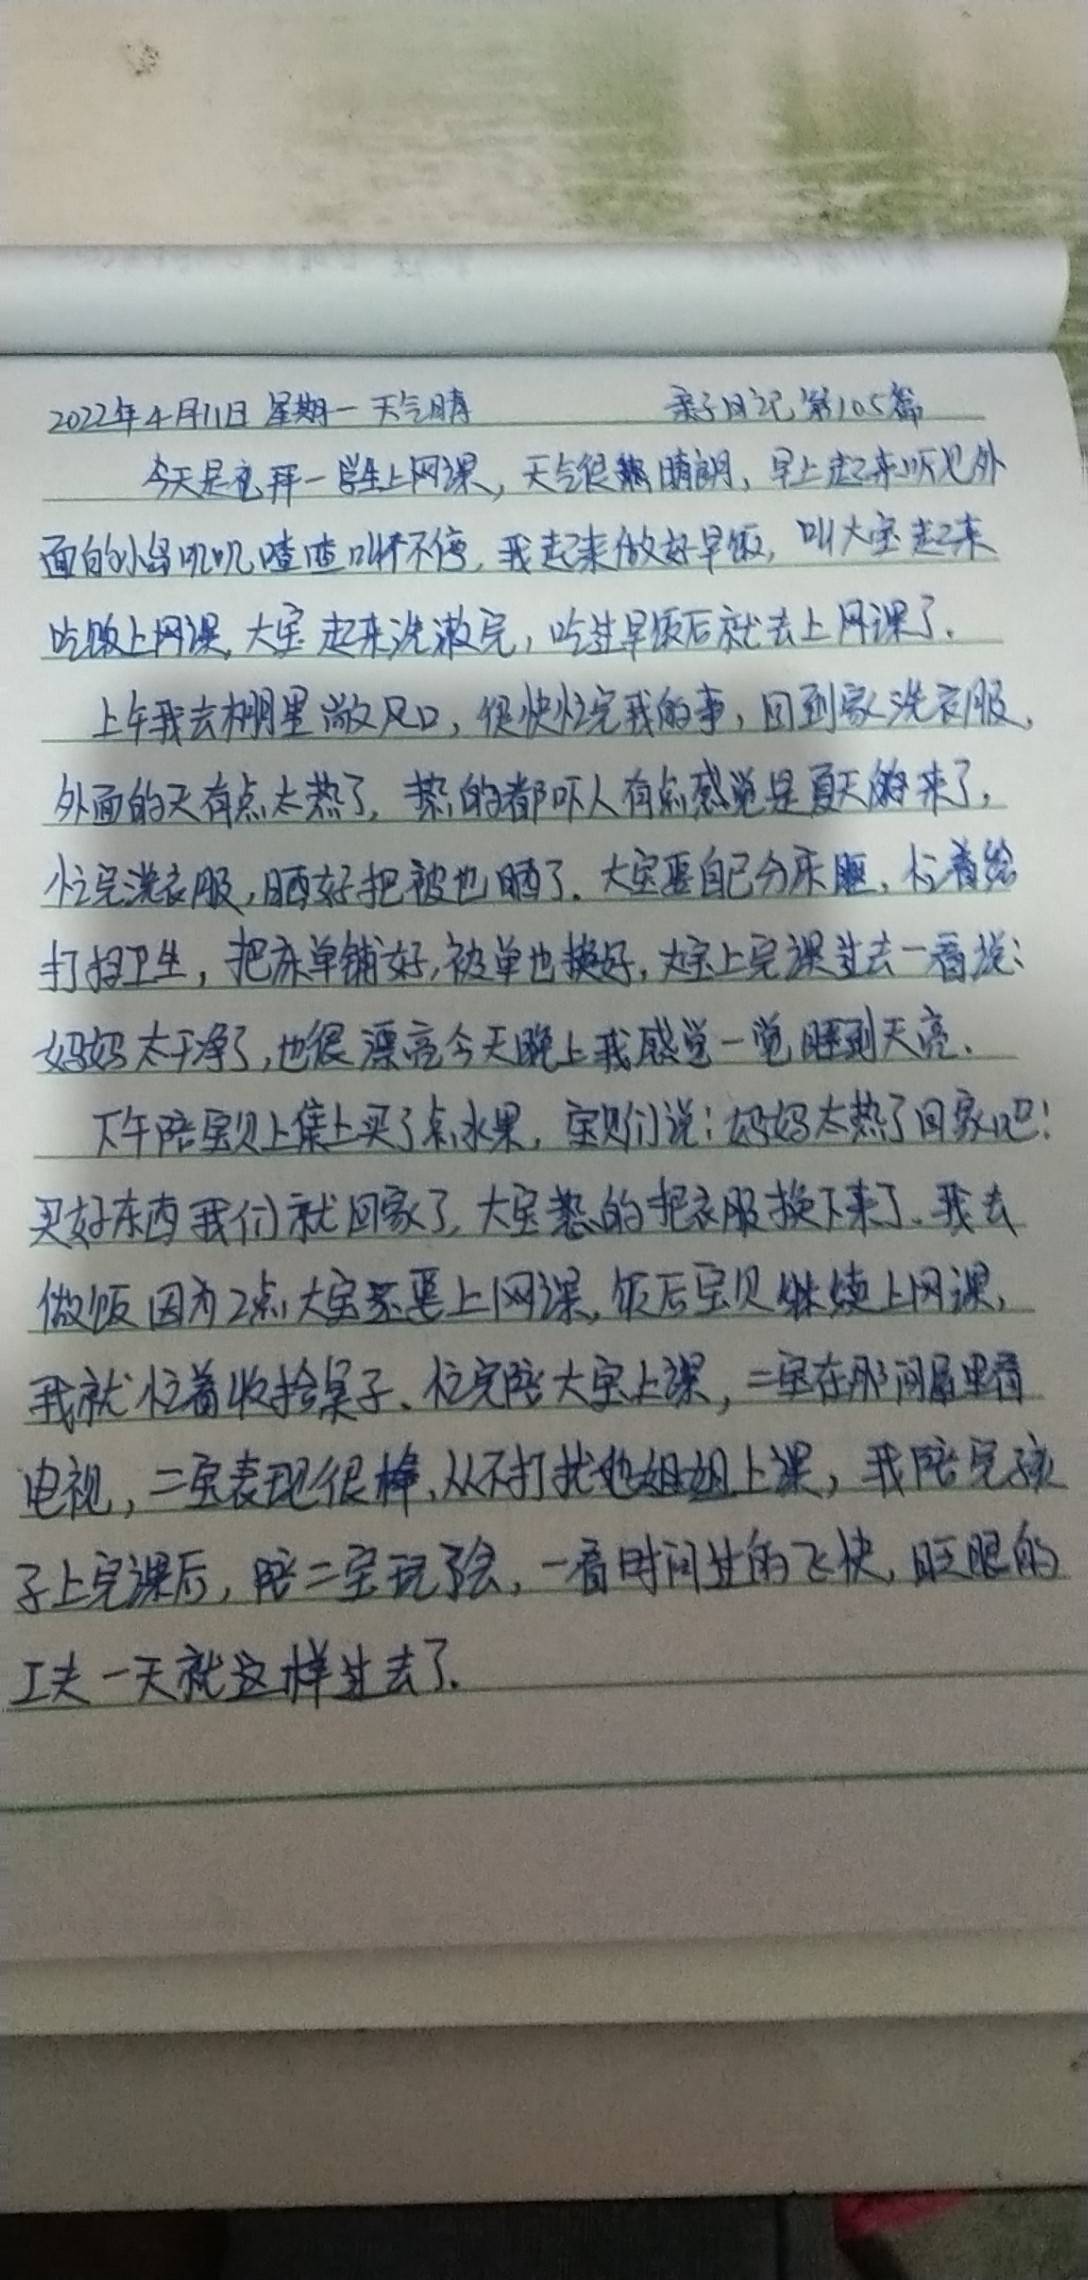 2022年4月11日 星期一 天气晴 亲子日记 第105篇
今天是礼拜一学生上网课，天气很晴朗，早上起来听见外
面的小鸟叽叽喳喳叫不停，我起来做好早饭，叫大宝起来
吃饭上网课，大宝起来洗漱完，吃过早饭后就去上网课了．
上午我去棚里放风口，很快忙完我的事，回到家洗衣服，
外面的天有点太热了，热的都吓人有点感觉是夏天的来了，
忙完洗衣服，晒好把被也晒了．大宝要自己分床睡，忙着给
打扫卫生，把床单铺好，被单也换好，大宝上完课过去一看说：
妈妈太干净了，也很漂亮今天晚上我感觉一觉睡到天亮．
下午陪宝贝上集上买了点水果，宝贝们说：妈妈太热了回家吧！
买好东西我们就回家了，大宝热的把衣服换下来了．我去
做饭因为2点大宝还要上网课，饭后宝贝继续上网课，
我就忙着收拾桌子、忙完陪大宝上课，二宝在那间屋里看
电视，二宝表现很棒、从不打扰他姐姐上课，我陪完孩
子上完课后，陪二宝玩会，一看时间过的飞快，眨眼的
工夫一天就这样过去了．